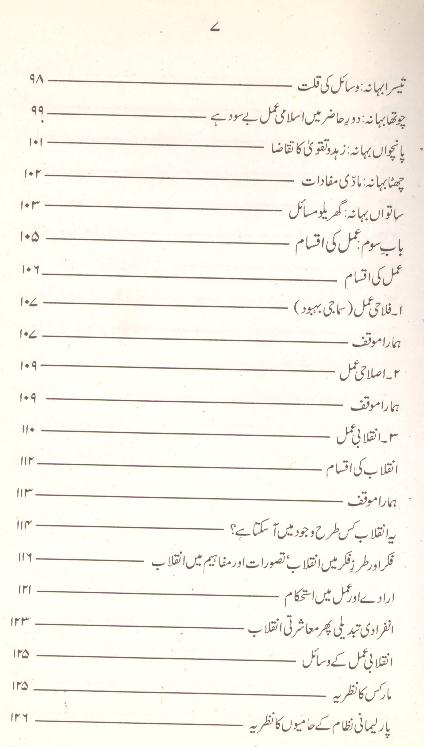 ۷
تیسرا بہانہ: وسائل کی قلت ۹۸
چوتھا بہانہ: دورِ حاضر میں اسلامی عمل بے سود ہے ۹۹
پانچواں بہانہ: زہد و تقویٰ کا تقاضا ۱۰۱
چھٹا بہانہ: مادّی مفادات ۱۰۲
ساتواں بہانہ: گھریلو مسائل ۱۰۳
باب سوم: عمل کی اقسام ۱۰۵
عمل کی اقسام ۱۰۶
۱۔ فلاحی عمل (سماجی بہبود) ۱۰۷
ہمارا موقف ۱۰۷
۲۔ اصلاحی عمل ۱۰۹
ہمارا موقف ۱۰۹
۳۔ انقلابی عمل ۱۱۰
انقلاب کی اقسام ۱۱۲
ہمارا موقف ۱۱۳
یہ انقلاب کس طرح وجود میں آسکتا ہے؟ ۱۱۴
فکر اور طرزِ فکر میں انقلاب، تصورات اور مفاہیم میں انقلاب ۱۱۶
ارادے اور عمل میں استحکام ۱۲۱
انفرادی تبدیلی پھر معاشرتی انقلاب ۱۲۳
انقلابی عمل کے وسائل ۱۲۵
مارکس کا نظریہ ۱۲۵
پارلیمانی نظام کے حامیوں کا نظریہ ۱۲۶